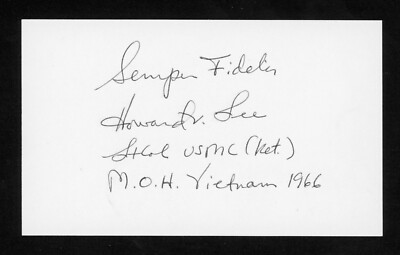 Semper Fidelis
Howard V. Lee
LtCol USMC (Ret.)
M.O.H. Vietnam 1966